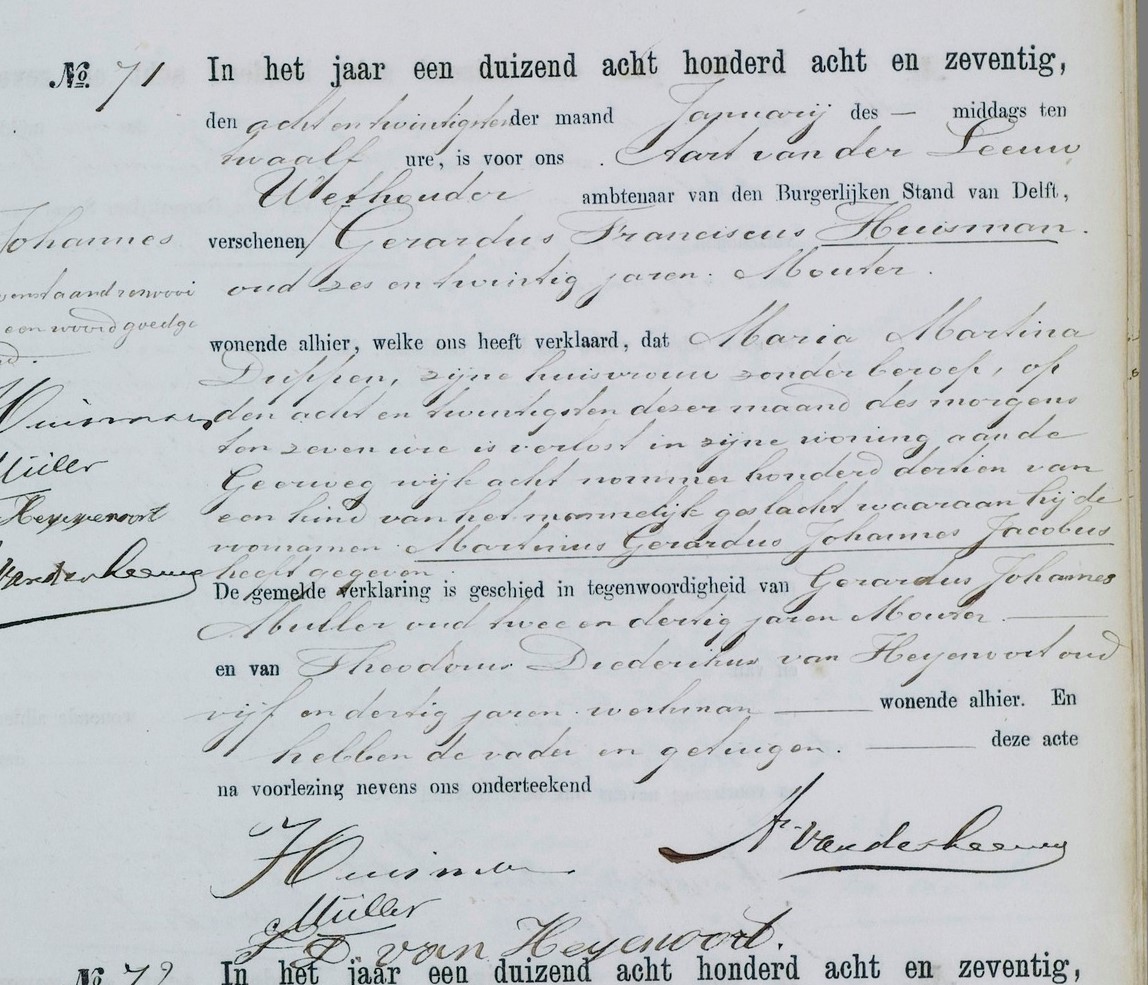 No. 71 In het jaar een duizend acht honderd acht en zeventig,
den acht en twintigsten der maand Januarij des — middags ten
twaalf ure, is voor ons Aart van der Leeuw
Wethouder ambtenaar van den Burgerlijken Stand van Delft,
verschenen Gerardus Franciscus Huisman.
oud zes en twintig jaren. Mouter.
wonende alhier, welke ons heeft verklaard, dat Maria Martina
Duppen, zijne huisvrouw zonder beroep, op
den acht en twintigsten dezer maand des morgens
ten zeven ure is verlost in zijne woning aan de
Geerweg wijk acht nommer honderd dertien van
een kind van het mannelijk geslacht waaraan hij de
voornamen Martinus Gerardus Johannes Jacobus
heeft gegeven.
De gemelde verklaring is geschied in tegenwoordigheid van Gerardus Johannes
Muller oud twee en dertig jaren Mouter.
en van Theodorus Diederikus van Heyenoort oud
vijf en dertig jaren werkman wonende alhier. En
hebben de vader en getuigen. deze acte
na voorlezing nevens ons onderteekend
Huisman
A van der Leeuw
Müller
T D van Heyenoort.
Johannes
een woord goedge
Huisman
Müller
Heyenoort
van der Leeuw
No. 72 In het jaar een duizend acht honderd acht en zeventig,